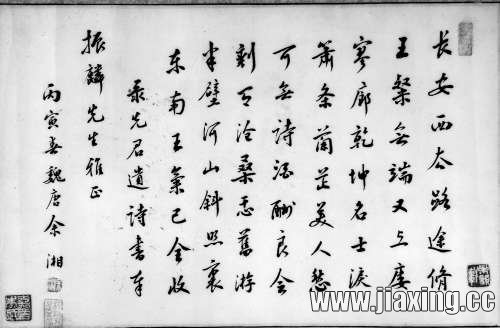 长安西去路途脩
王粲無端又上廔
寥廓乾坤名士淚
蕭条蘭芷美人愁
可無詩酒酬良会
剩有滄桑忘舊游
半壁河山斜照裏
东南王氣已全收
录先君遺詩書奉
振麟先生雅正
丙寅春魏唐余湘
www.jiaxing.cc